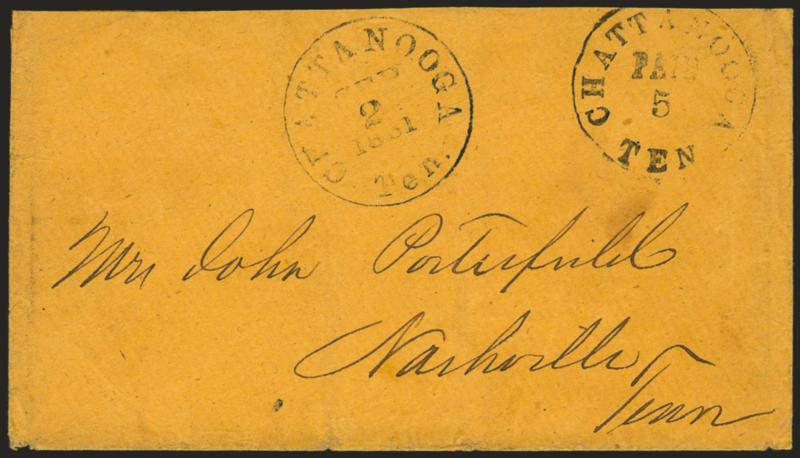 CHATTANOOGA
SEP
2
1861
Ten.
CHATTANOOGA
PAID
5
TEN
Mrs John Porterfield
Nashville
Tenn